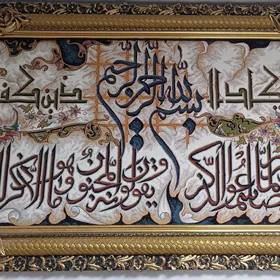 بسم الله الرحمن الرحيم
يكاد الذين كف
لما سمعوا الذكر ويقولون إنه لمجنون وما هو إلا ذكر